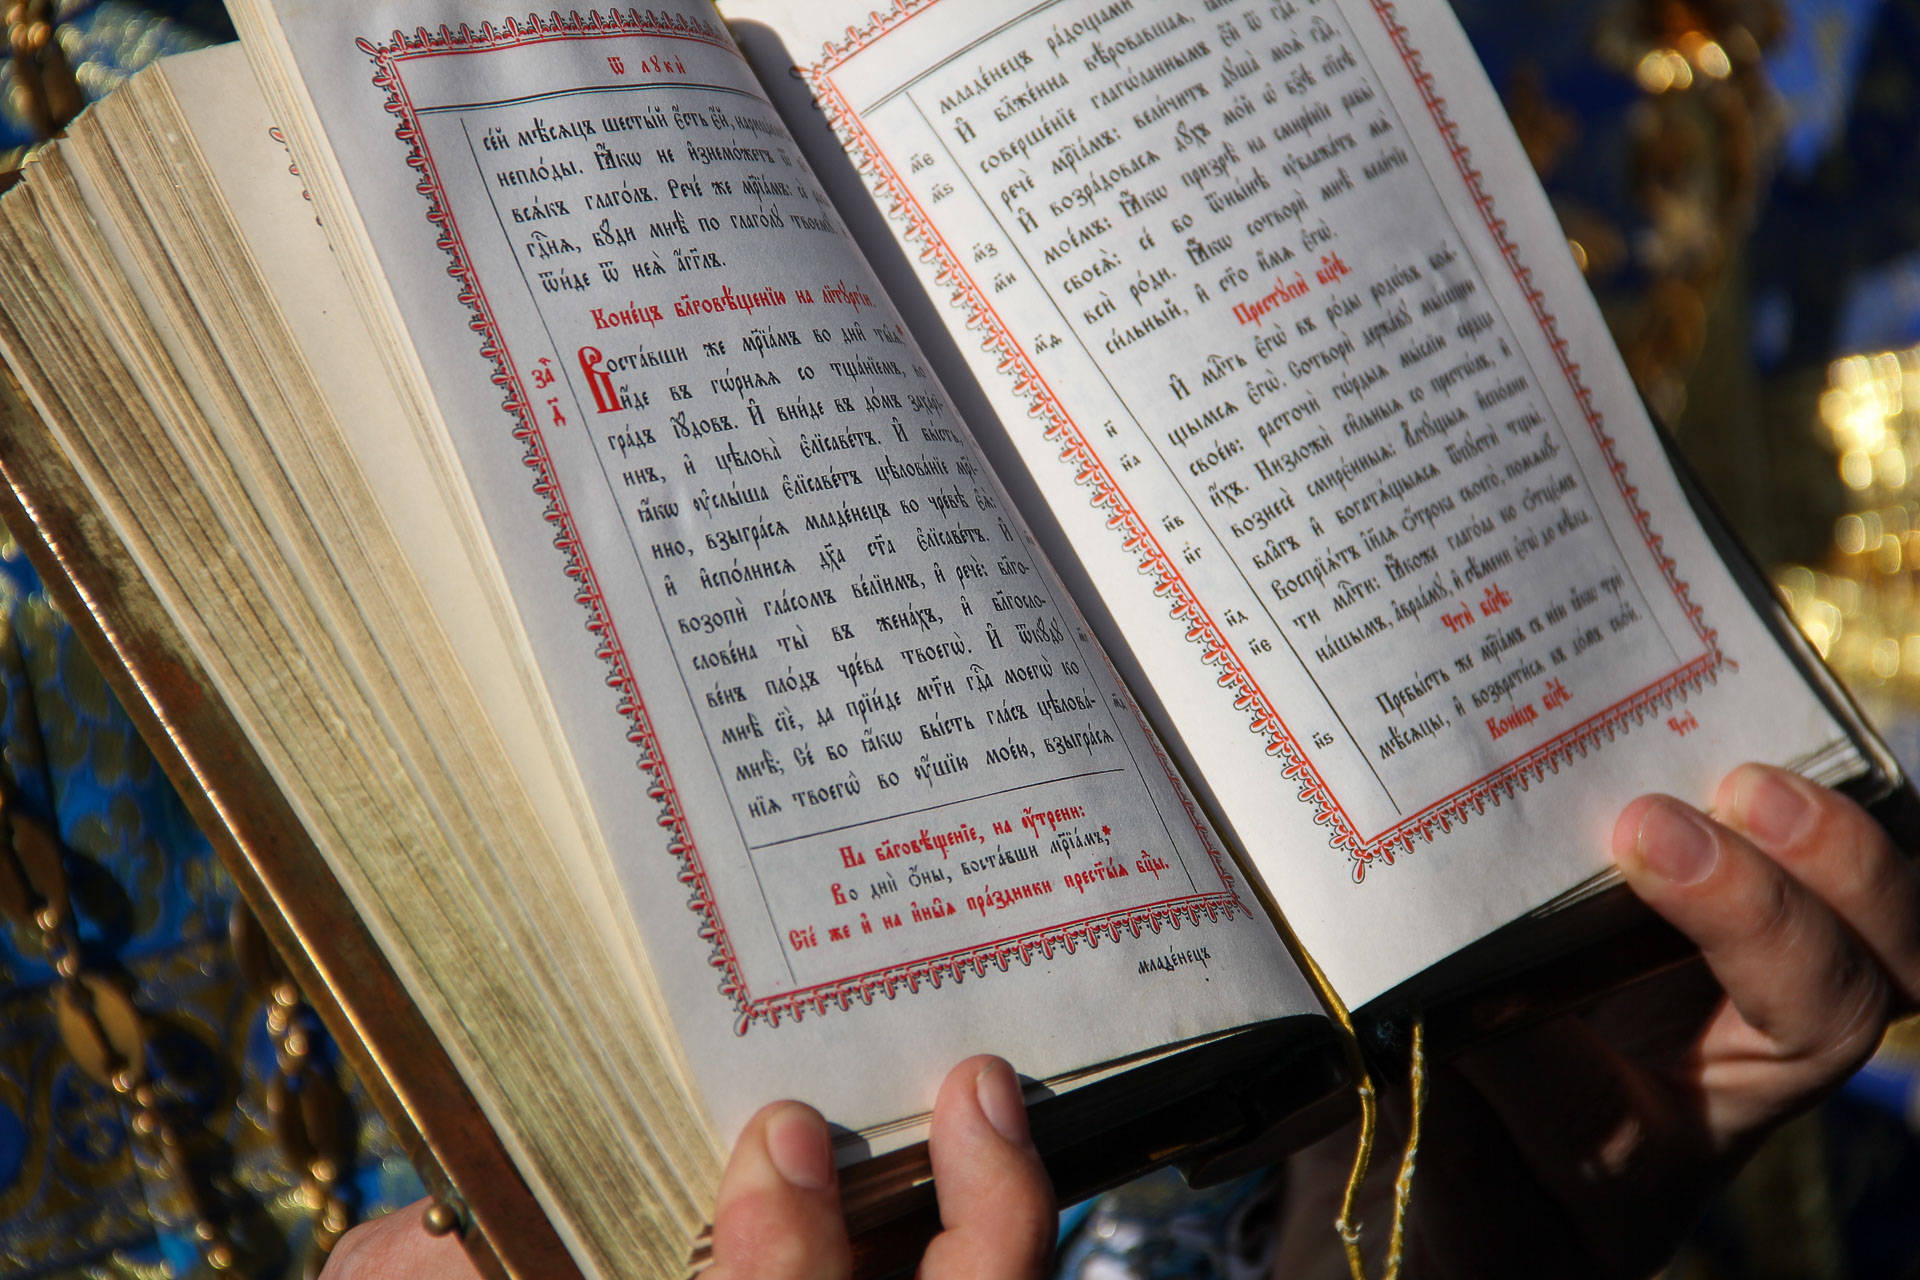 Ѿ лꙋкѝ
се́й мѣ́сѧцъ шесты́й є҆́сть є҆́й, нарица́емѣй
непло́ды. Ꙗ҆́кѡ не и҆знемо́жетъ ѿ
всѧ́къ глаго́лъ. Рече́ же мр҃їа́мъ: сѐ
гдⷭ҇нѧ, бꙋ́ди мнѣ̀ по глаго́лꙋ твоемꙋ̀.
ѿи́де ѿ неѧ̀ а҆́гг҃лъ.
Коне́цъ бл҃говѣ́щенїю на лїтꙋргі́и.
За҄ д҃
Воста́вши же мр҃їа́мъ во дни̑ ты̑ѧ*
и҆́де въ гѡ́рнѧѧ со тща́нїемъ, во
гра́дъ і҆ꙋ́довъ. И҆ вни́де въ до́мъ заха́рі-
инъ, и҆ цѣлова̀ є҆лїсаве́тъ. И҆ бы́сть,
ꙗ҆́кѡ ᲂу҆слы́ша є҆лїсаве́тъ цѣлова́нїе мр҃і-
ино, взыгра́сѧ младе́нецъ во чре́вѣ є҆ѧ̀:
и҆ и҆спо́лнисѧ дх҃а ст҃а є҆лїсаве́тъ. И҆
возопѝ гла́сомъ ве́лїимъ, и҆ речѐ: бл҃го-
слове́на ты̀ въ жена́хъ, и҆ бл҃госло-
ве́нъ пло́дъ чре́ва твоегѡ̀. И҆ ѿкꙋ́дꙋ
мнѣ̀ сїѐ, да прїи́де мт҃и гдⷭ҇а моегѡ̀ ко
мнѣ̀; Се́ бо ꙗ҆́кѡ бы́сть гла́съ цѣлова́-
нїѧ твоегѡ̀ во ᲂу҆́шїю мое́ю, взыгра́сѧ
На бл҃говѣ́щенїе, на ᲂу҆́трени:
Во дни̑ ѻ҆́ны, воста́вши мр҃їа́мъ,*
Сїе́ же и҆ на и҆ны̑ѧ пра́здники прест҃ы́ѧ бцⷣы.
младе́нецъ
младе́нецъ ра́дощами
И҆ блаже́нна вѣ́ровавшаѧ,
соверше́нїе глаго́ланнымъ є҆́й ѿ гдⷭ҇а. И҆
м҃ѕ речѐ мр҃їа́мъ: вели́читъ дꙋша̀ моѧ̀ гдⷭ҇а,
м҃з И҆ возра́довасѧ дꙋ́хъ мо́й ѡ҆ бз҃ѣ сп҃сѣ
м҃и мое́мъ: Ꙗ҆́кѡ призрѣ̀ на смире́нїе рабы̀
своеѧ̀: се́ бо ѿны́нѣ ᲂу҆блажа́тъ мѧ̀
м҃ѳ всѝ ро́ди. Ꙗ҆́кѡ сотворѝ мнѣ̀ вели́чїе
си́льный, и҆ ст҃о и҆́мѧ є҆гѡ̀.
Престꙋпѝ бцⷣѣ.
н҃ И҆ млⷭ҇ть є҆гѡ̀ въ ро́ды родѡ́въ боѧ-
н҃а щымсѧ є҆гѡ̀. Сотворѝ держа́вꙋ мы́шцею
свое́ю: расточѝ гѡ́рдыѧ мы́слїю се́рдца
н҃в и҆́хъ. Низложѝ си́льныѧ со престѡ́лъ, и҆
н҃г вознесѐ смире́нныѧ: А҆́лчꙋщыѧ и҆спо́лни
бла̑гъ и҆ богатѧ́щыѧсѧ ѿпꙋстѝ тщы̀.
н҃д Воспрїѧ́тъ і҆и҃лѧ ѻ҆́трока своего̀, помѧнꙋ́-
н҃є ти млⷭ҇ти: Ꙗ҆́коже глаго́ла ко ѻ҆тцє́мъ
на́шымъ, а҆враа́мꙋ, и҆ сѣ́мени є҆гѡ̀ до вѣ́ка.
Чтѝ бцⷣѣ:
н҃ѕ Пребы́сть же мр҃їа́мъ съ не́ю ꙗ҆́кѡ трѝ
мѣ́сѧцы, и҆ возврати́сѧ въ до́мъ сво́й.
Коне́цъ бцⷣѣ.
Чтѝ